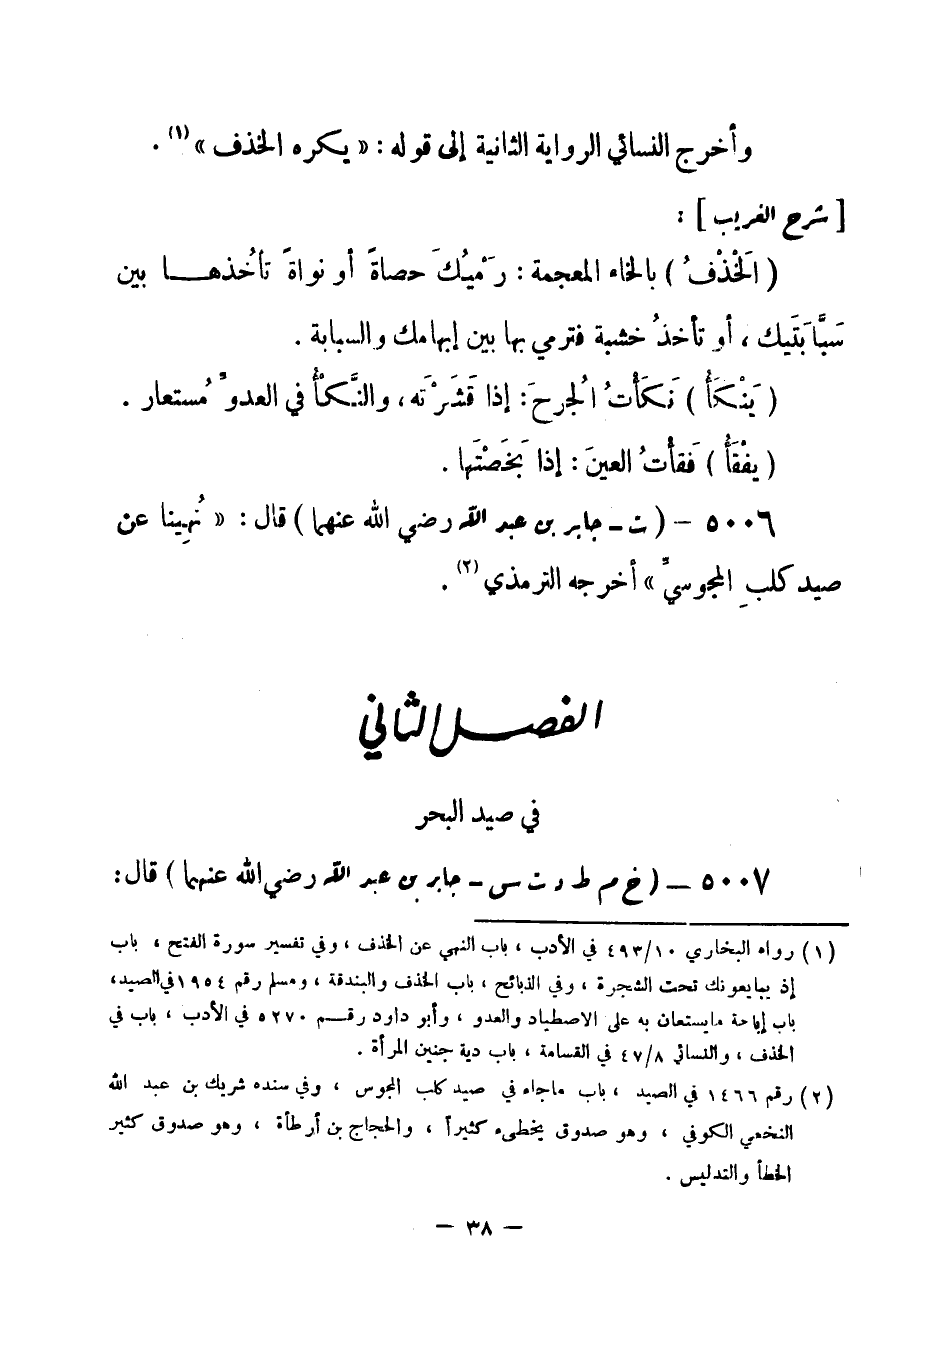 وأخرج النسائي الرواية الثانية إلى قوله : « يكره الخذف »(١) .
[ شرح الغريب ] :
( الَخْذْفُ ) بالخاء المعجمة : رَمْيُكَ حصاةً أو نواةً تأخُذهـا بين
سَبَّابَتَيك ، أو تأخذُ خشبة فترمي بها بين إبهامك والسبابة .
( يَنْكَأُ ) نَكَأْتُ الُجرحَ : إذا قَشَرْتَه ، والنَّكْأُ في العدوِّ مُستعار .
( يفْقَأُ ) فَقأْتُ العينَ : إذا بَخَصْتَها .
٥٠٠٦ – ( ت – جابر بن عبد الله رضي الله عنهما ) قال : « نُهِينا عن
صيد كلبِ المجوسيِّ » أخرجه الترمذي(٢) .
الفصل الثاني
في صيد البحر
٥٠٠٧ – ( خ م ط د ت س – جابر بن عبد الله رضي الله عنهما ) قال :
( ١ ) رواه البخاري ٤٩٣/١٠ في الأدب ، باب النهي عن الخذف ، وفي تفسير سورة الفتح ، باب
إذ يبايعونك تحت الشجرة ، وفي الذبائح ، باب الخذف والبندقة ، ومسلم رقم ١٩٥٤ في الصيد،
باب إباحة مايستعان به على الاصطياد والعدو ، وأبو داود رقـم ٥٢٧٠ في الأدب ، باب في
الخذف ، والنسائي ٤٧/٨ في القسامة ، باب دية جنين المرأة .
( ٢ ) رقم ١٤٦٦ في الصيد ، باب ماجاء في صيد كلب المجوس ، وفي سنده شريك بن عبد الله
النخعي الكوفي ، وهو صدوق يخطىء كثيراً ، والحجاج بن أرطأة ، وهو صدوق كثير
الخطأ والتدليس .
– ٣٨ –